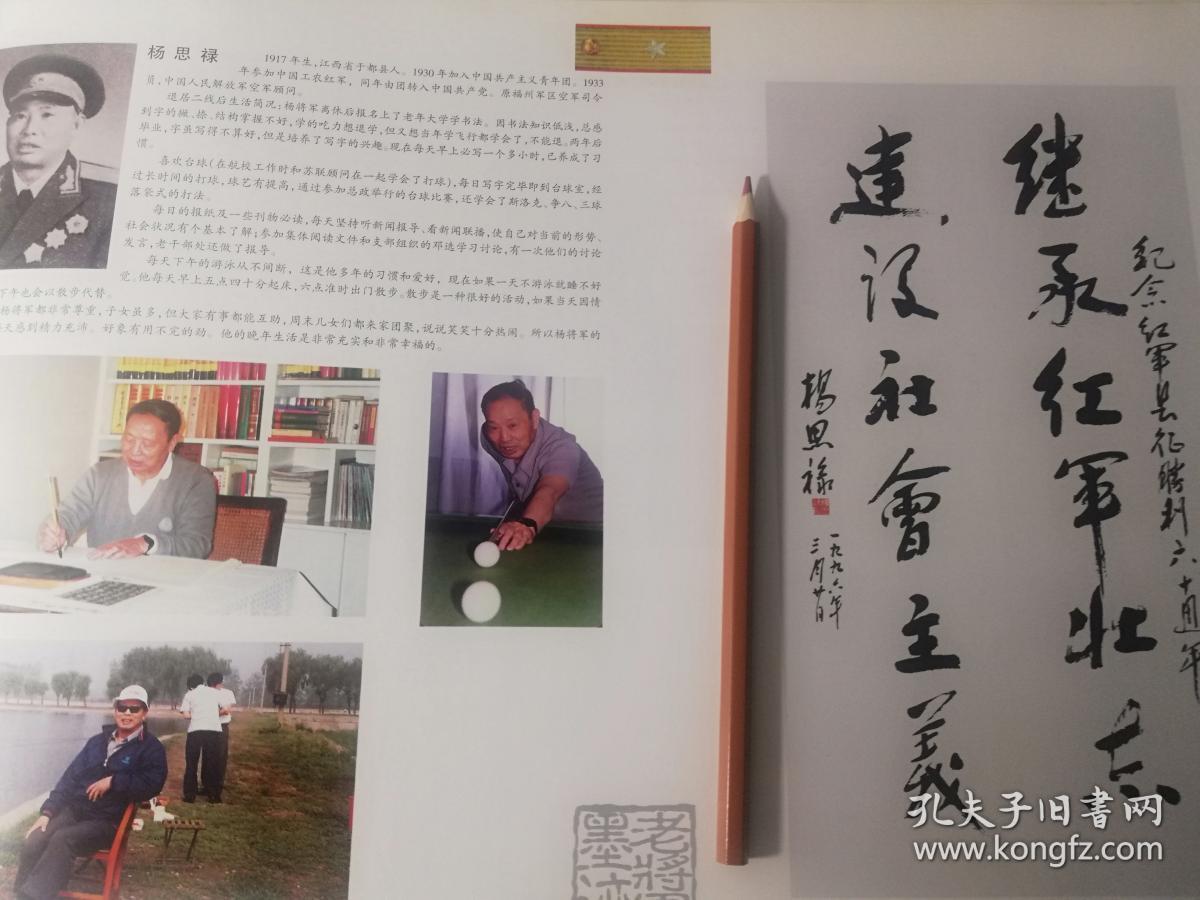 杨思禄
1917年生,江西省于都县人。1930年加入中国共产主义青年团。1933
年参加中国工农红军,同年由团转入中国共产党。原福州军区空军司令
员,中国人民解放军空军顾问。
退居二线后生活简况:杨将军离休后报名上了老年大学学书法。因书法知识低浅,总感
到字的撇、捺、结构掌握不好,学的吃力想退学,但又想当年学飞行都学会了,不能退。两年后
毕业,字虽写得不算好,但是培养了写字的兴趣。现在每天早上必写一个多小时,已养成了习
惯。
喜欢台球(在航校工作时和苏联顾问在一起学会了打球),每日写字完毕即到台球室,经
过长时间的打球,球艺有提高,通过参加总政举行的台球比赛,还学会了斯洛克、争八、三球
落袋式的打法。
每日的报纸及一些刊物必读,每天坚持听新闻报导、看新闻联播,使自己对当前的形势、
社会状况有个基本了解;参加集体阅读文件和支部组织的邓选学习讨论,有一次他们的讨论
发言,老干部处还做了报导。
每天下午的游泳从不间断,这是他多年的习惯和爱好,现在如果一天不游泳就睡不好
觉。他每天早上五点四十分起床,六点准时出门散步。散步是一种很好的活动,如果当天因情
下午也会以散步代替。
杨将军都非常尊重,子女虽多,但大家有事都能互助,周末儿女们都来家团聚,说说笑笑十分热闹。所以杨将军的
天感到精力充沛。好象有用不完的劲。他的晚年生活是非常充实和非常幸福的。
纪念红军长征勝利六十週年
继承红军壮志
建设社會主義
楊思祿
一九九六年
三月廿日
老將軍
墨迹
孔夫子旧书网
www.kongfz.com